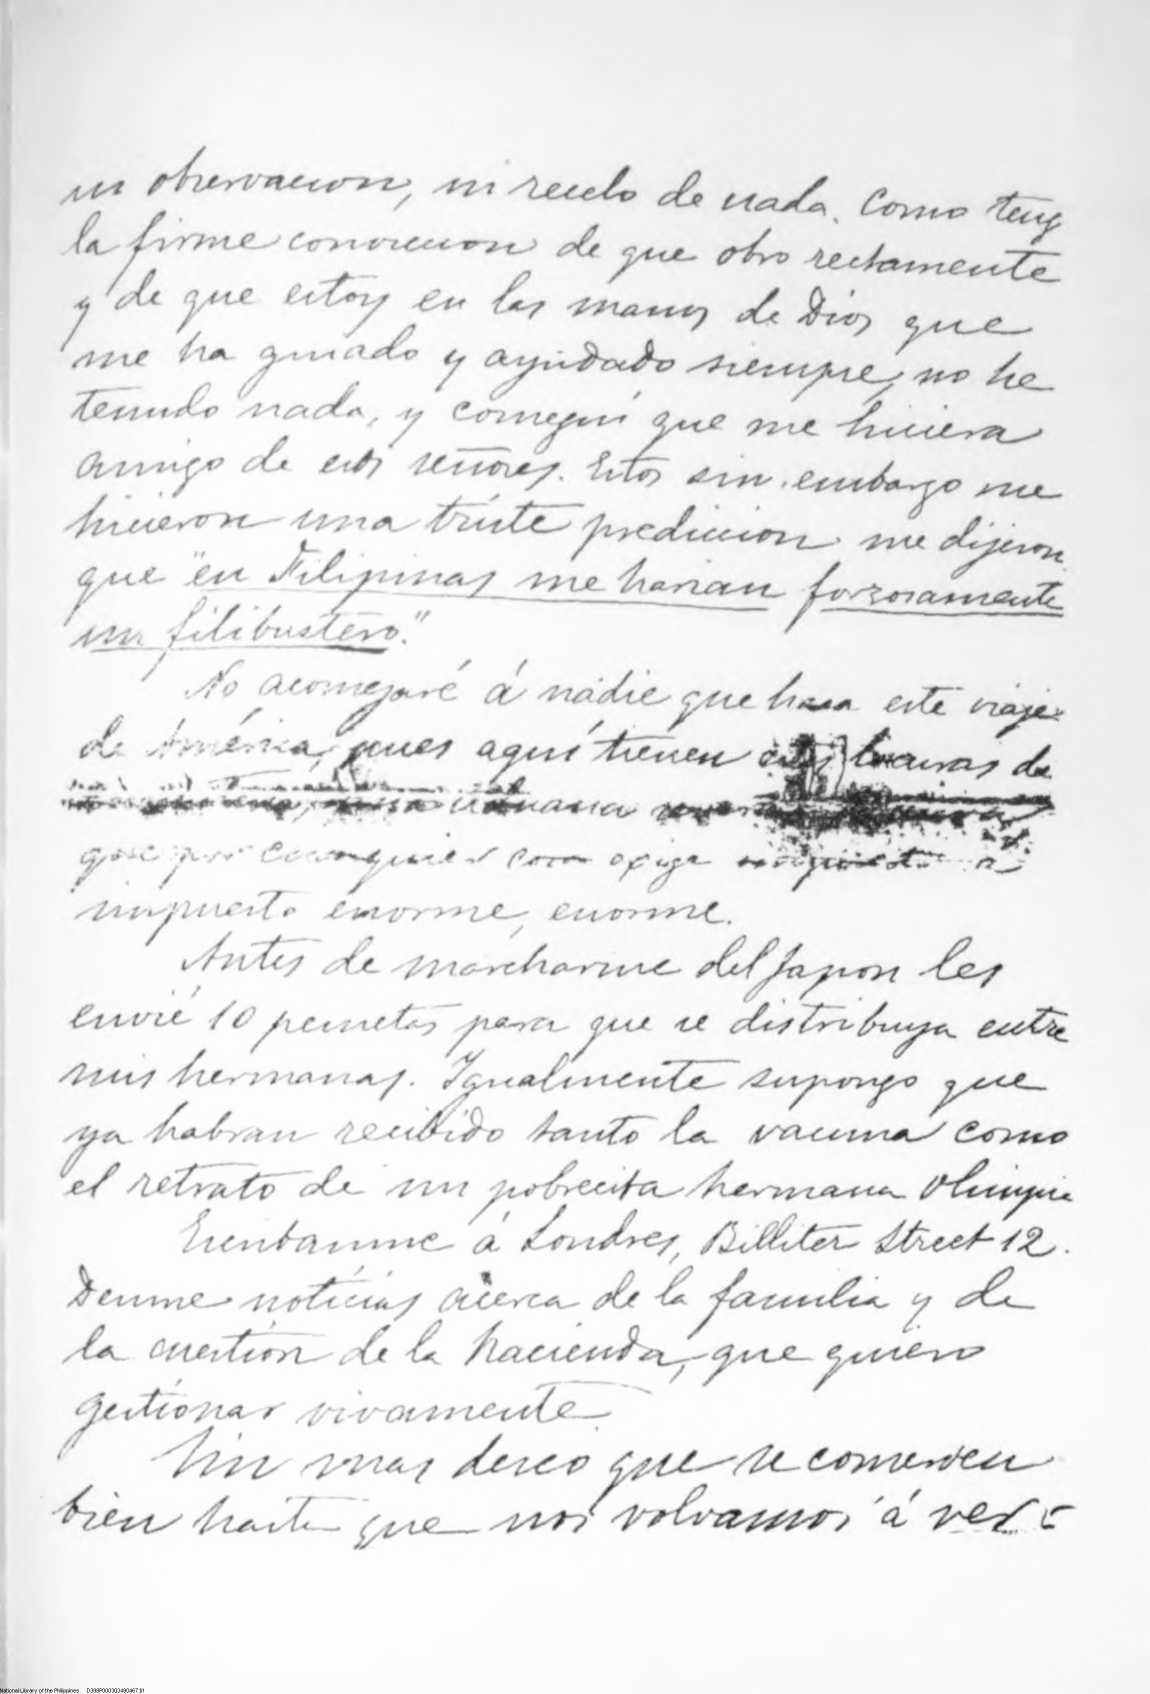 ni observacion, ni recelo de nada. Como teng
la firme conviccion de que obro rectamente
y de que estoy en las manos de Dios que
me ha guiado y ayudado siempre, no he
temido nada, y conseguí que me hiciera
amigo de esos señores. Estos sin embargo me
hicieron una triste prediccion me dijeron
que "en Filipinas me harian forzosamente
un filibustero."
No aconsejaré á nadie que haga este viaje
de América, pues aquí tienen locuras de
cuarentena, una
que por cualquier cosa exige
impuesto enorme, enorme.
Antes de marcharme del Japon les
envié 10 pesetas para que se distribuya entre
mis hermanas. Igualmente supongo que
ya habran recibido tanto la vacuna como
el retrato de mi pobrecita hermana Olimpia
Escribanme á Londres, Billiter Street 12.
Denme noticias acerca de la familia y de
la cuestion de la hacienda, que quiero
gestionar vivamente.
Sin mas deseo que se conserven
bien hasta que nos volvamos á ver
National Library of the Philippines D398P00030349046?.tif